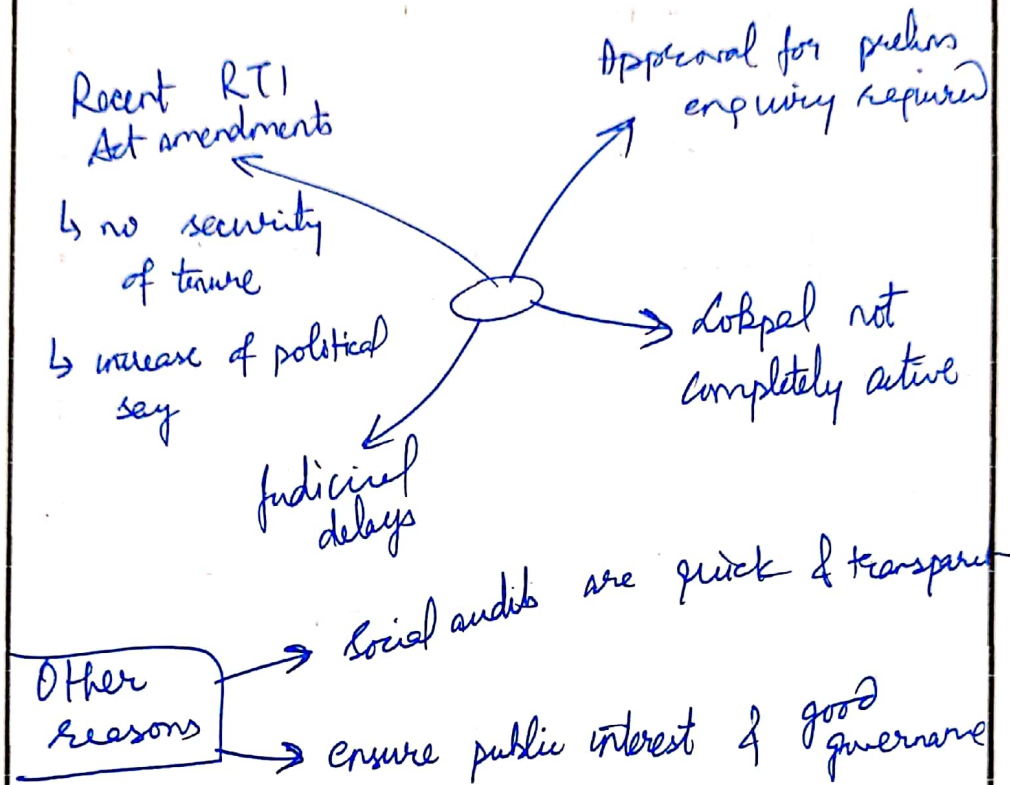 Recent RTI
Act amendments
↳ no security
of tenure
↳ increase of political
say
Approval for prelim
enquiry required
Lokpal not
completely active
Judicial
delays
Other
reasons
Social audits are quick & transparent
ensure public interest & good
governance